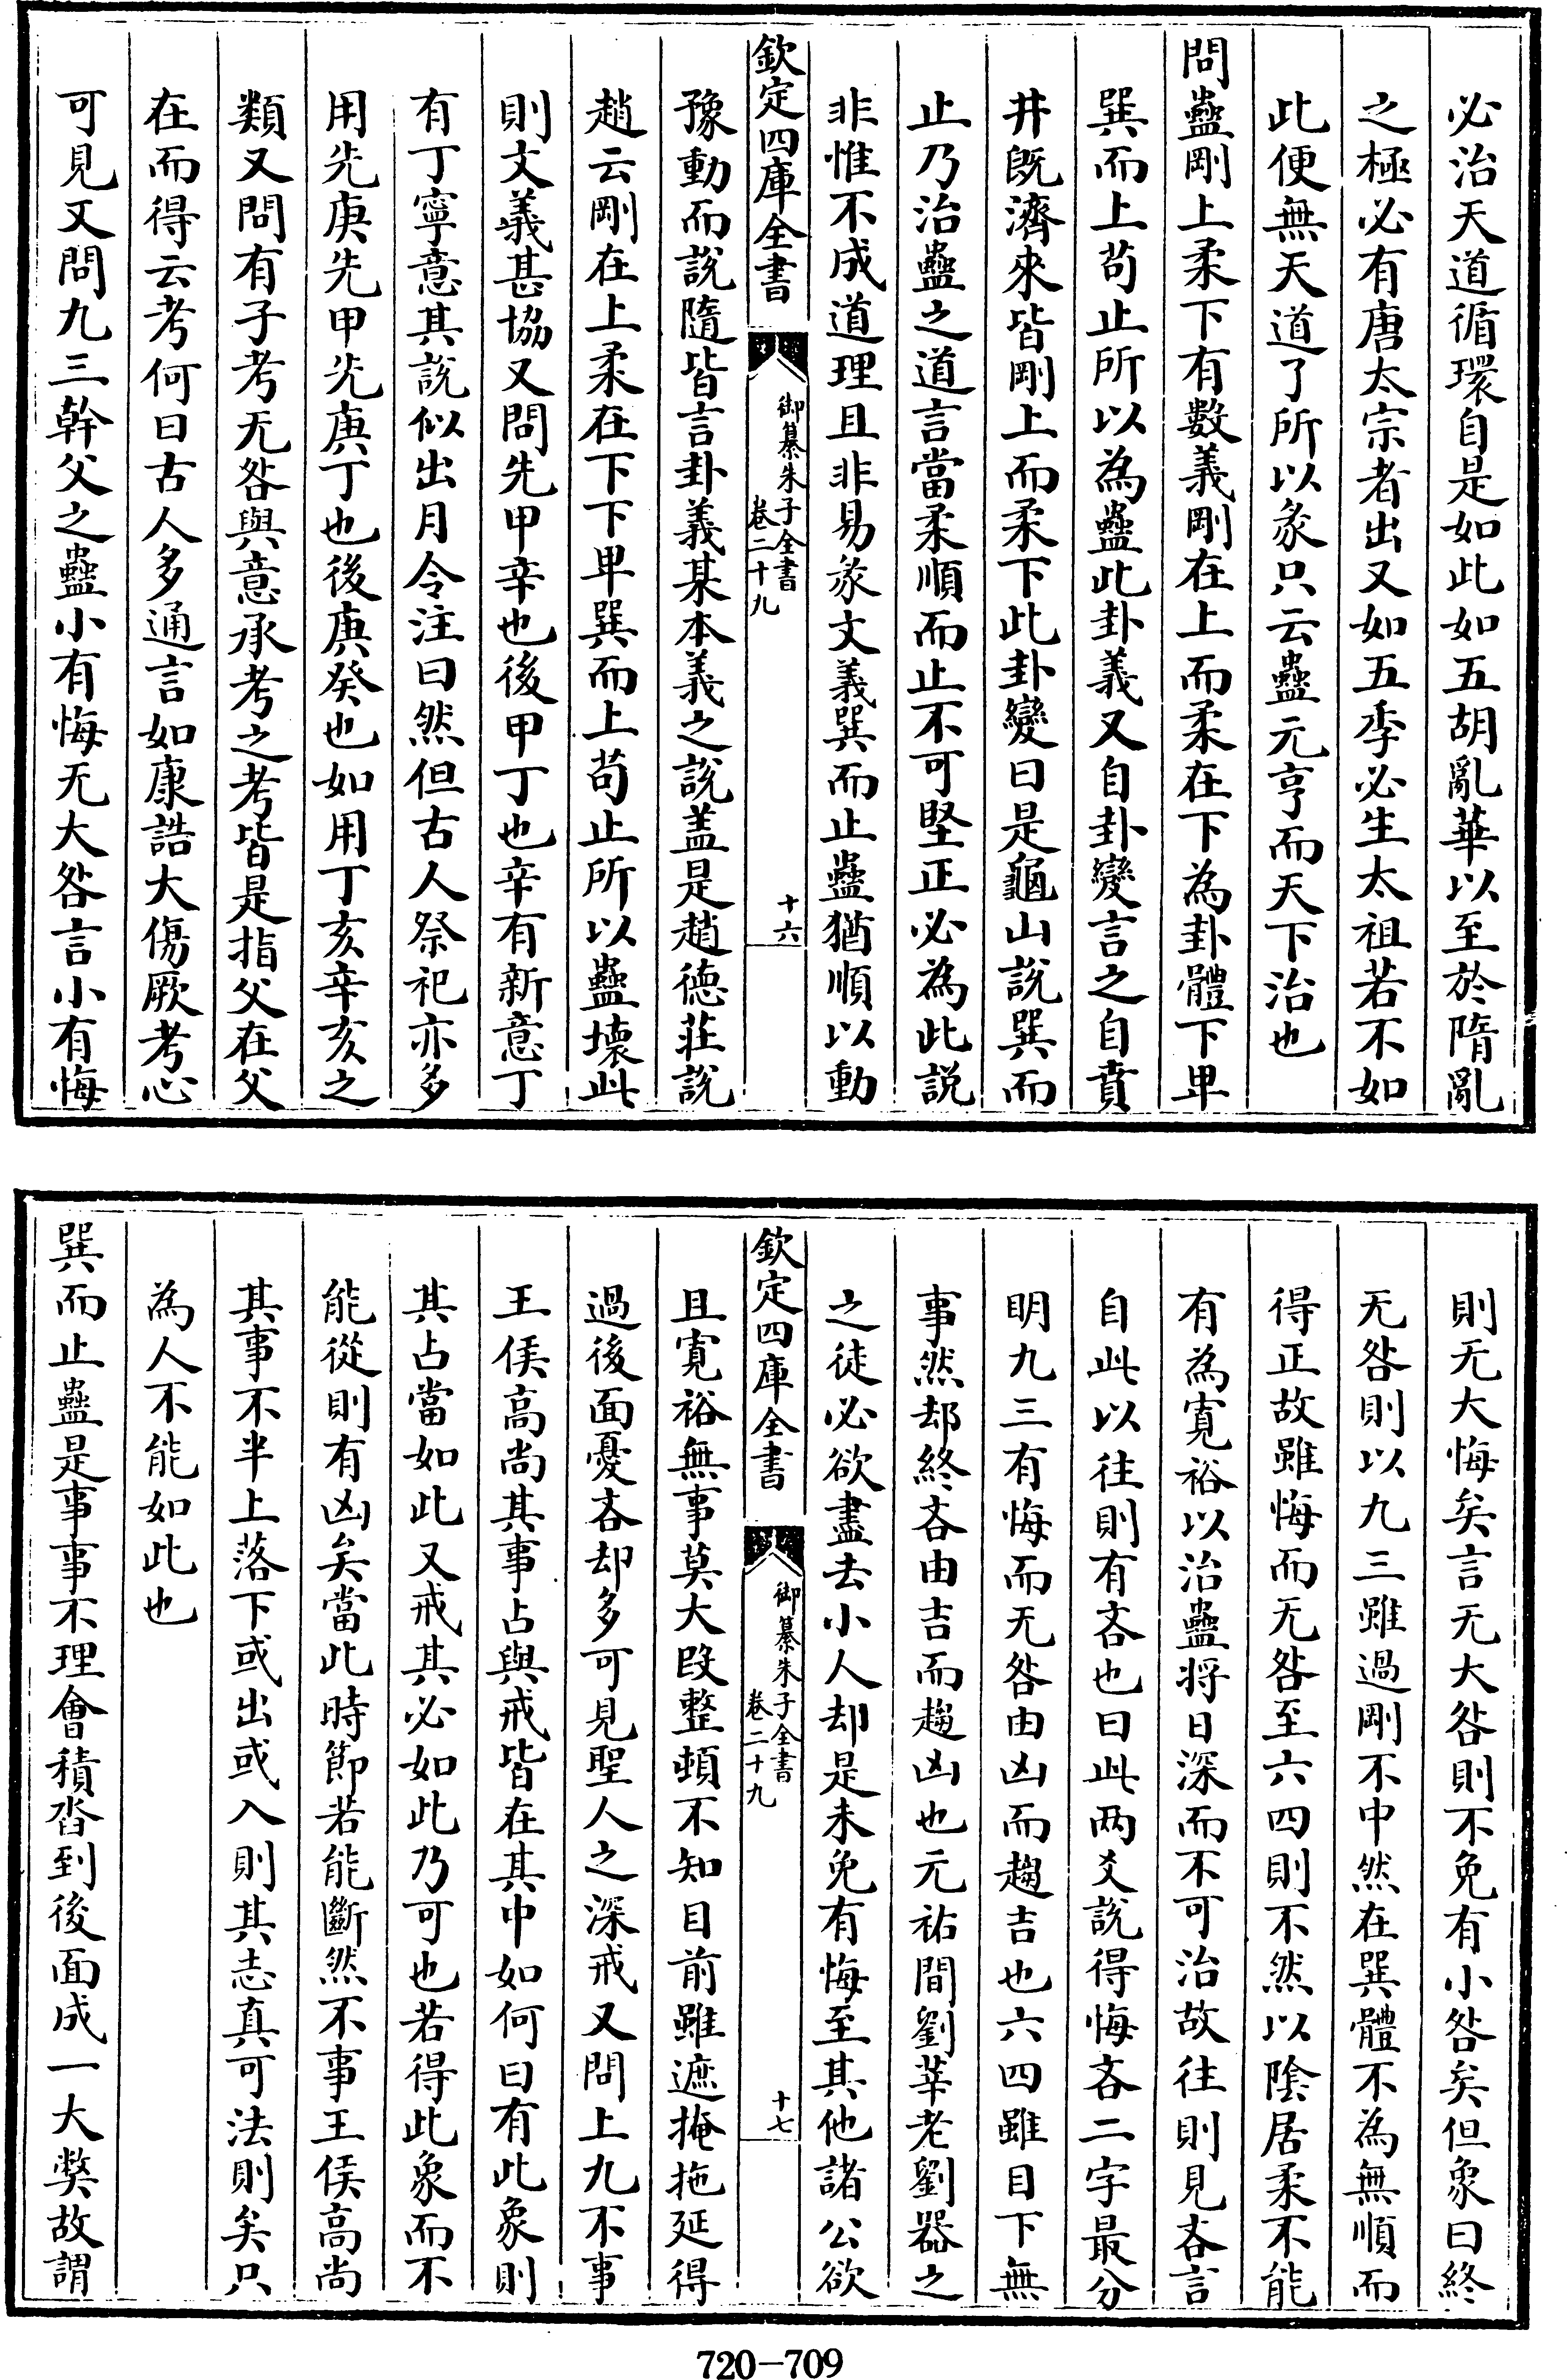 必治天道循環自是如此如五胡亂華以至於隋亂
之極必有唐太宗者出又如五季必生太祖若不如
此便無天道了所以彖只云蠱元亨而天下治也
問蠱剛上柔下有數義剛在上而柔在下為卦體下卑
巽而上苟止所以為蠱此卦義又自卦變言之自賁
井既濟來皆剛上而柔下此卦變曰是龜山說巽而
止乃治蠱之道言當柔順而止不可堅正必為此說
非惟不成道理且非易彖文義巽而止蠱猶順以動
欽定四庫全書
御纂朱子全書
卷二十九
十六
豫動而說隨皆言卦義某本義之說盖是趙德莊說
趙云剛在上柔在下下卑巽而上苟止所以蠱壞此
則文義甚協又問先甲辛也後甲丁也辛有新意丁
有丁寧意其說似出月令注曰然但古人祭祀亦多
用先庚先甲先庚丁也後庚癸也如用丁亥辛亥之
類又問有子考无咎與意承考之考皆是指父在父
在而得云考何曰古人多通言如康誥大傷厥考心
可見又問九三幹父之蠱小有悔无大咎言小有悔
則无大悔矣言无大咎則不免有小咎矣但象曰終
无咎則以九三雖過剛不中然在巽體不為無順而
得正故雖悔而无咎至六四則不然以陰居柔不能
有為寛裕以治蠱将日深而不可治故往則見吝言
自此以往則有吝也曰此两爻說得悔吝二字最分
明九三有悔而无咎由凶而趨吉也六四雖目下無
事然却終吝由吉而趨凶也元祐間劉莘老劉器之
之徒必欲盡去小人却是未免有悔至其他諸公欲
欽定四庫全書
御纂朱子全書
卷二十九
十七
且寛裕無事莫大段整頓不知目前雖遮掩拖延得
過後面憂吝却多可見聖人之深戒又問上九不事
王侯高尚其事占與戒皆在其中如何曰有此象則
其占當如此又戒其必如此乃可也若得此象而不
能從則有凶矣當此時節若能斷然不事王侯高尚
其事不半上落下或出或入則其志真可法則矣只
為人不能如此也
巽而止蠱是事事不理會積沓到後面成一大弊故謂
720-709